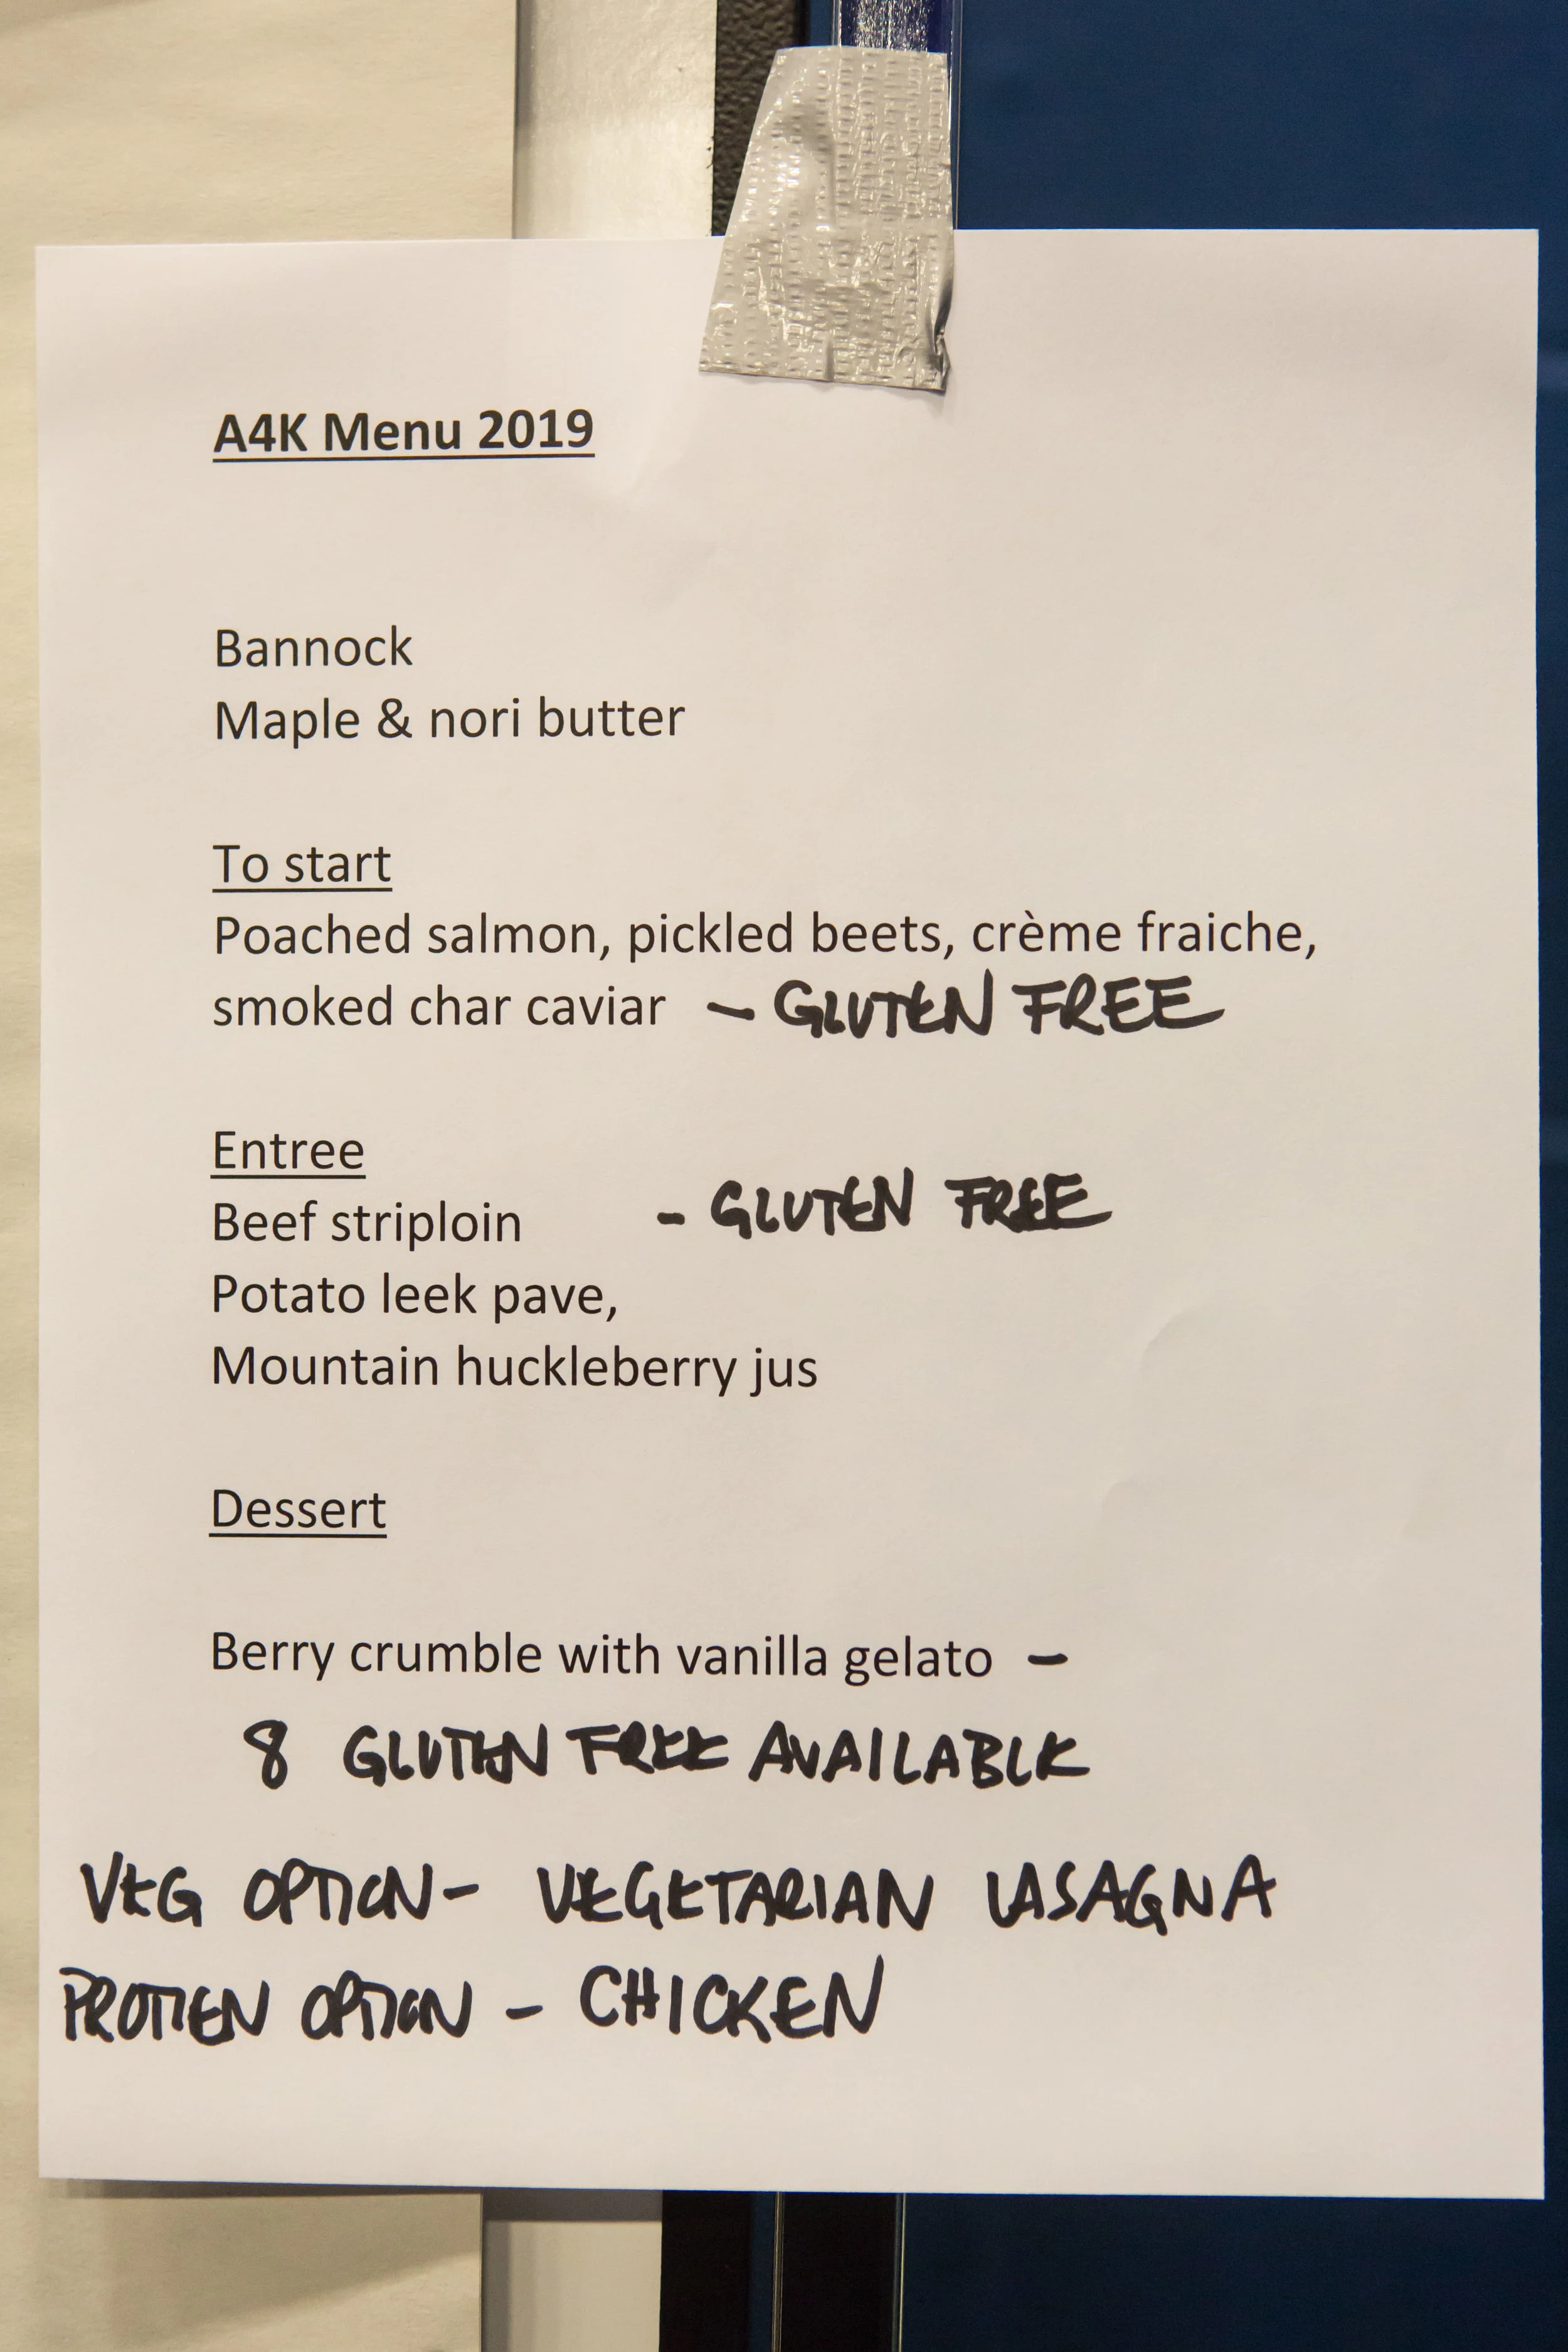 A4K Menu 2019
Bannock
Maple & nori butter
To start
Poached salmon, pickled beets, crème fraiche,
smoked char caviar – GLUTEN FREE
Entree
Beef striploin - GLUTEN FREE
Potato leek pave,
Mountain huckleberry jus
Dessert
Berry crumble with vanilla gelato –
8 GLUTEN FREE AVAILABLE
VEG OPTION - VEGETARIAN LASAGNA
PROTIEN OPTION - CHICKEN